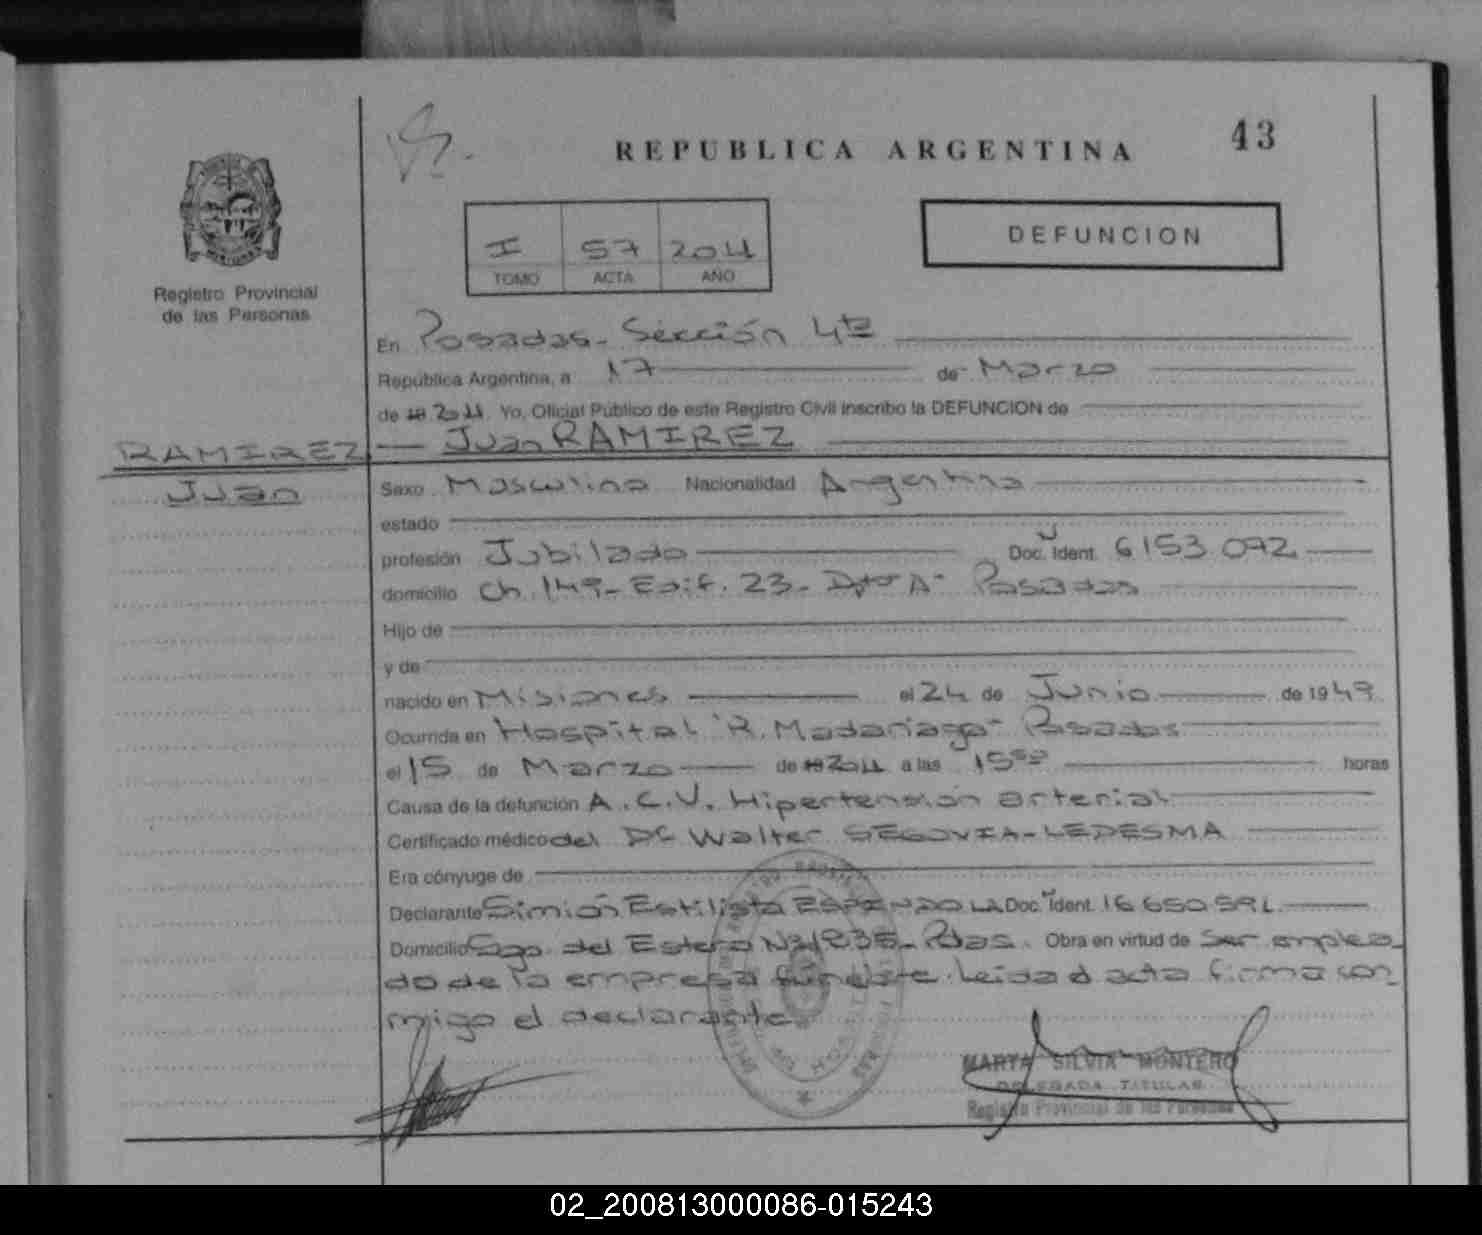 REPUBLICA ARGENTINA
43
I 57 2011
TOMO ACTA AÑO
DEFUNCION
Registro Provincial
de las Personas
En Posadas - Sección 4ta
República Argentina, a 17 de Marzo
de 19 2011 Yo, Oficial Público de este Registro Civil inscribo la DEFUNCION de
RAMIREZ
Juan
Juan RAMIREZ
Sexo Masculino Nacionalidad Argentina
estado
profesión Jubilado Doc. Ident. 6153.072
domicilio Ch. 149 - Edif. 23 - Dpto A - Posadas
Hijo de
y de
nacido en Misiones el 24 de Junio de 1949
Ocurrida en Hospital "R. Madariaga" Posadas
el 15 de Marzo de 19 2011 a las 15 horas
Causa de la defunción A.C.V. Hipertensión arterial
Certificado médico del Dr Walter SEGOVIA-LEDESMA
Era cónyuge de
Declarante Simión Estilista ESPINDOLA Doc. Ident. 16 650 591
Domicilio Sgo. del Estero Nº 1835 - Pdas. Obra en virtud de Ser emplea-
do de la empresa fúnebre. Leida el acta firma con-
migo el declarante.
MARTA SILVIA MONTERO
DELEGADA TITULAR
Registro Provincial de las Personas
02_200813000086-015243